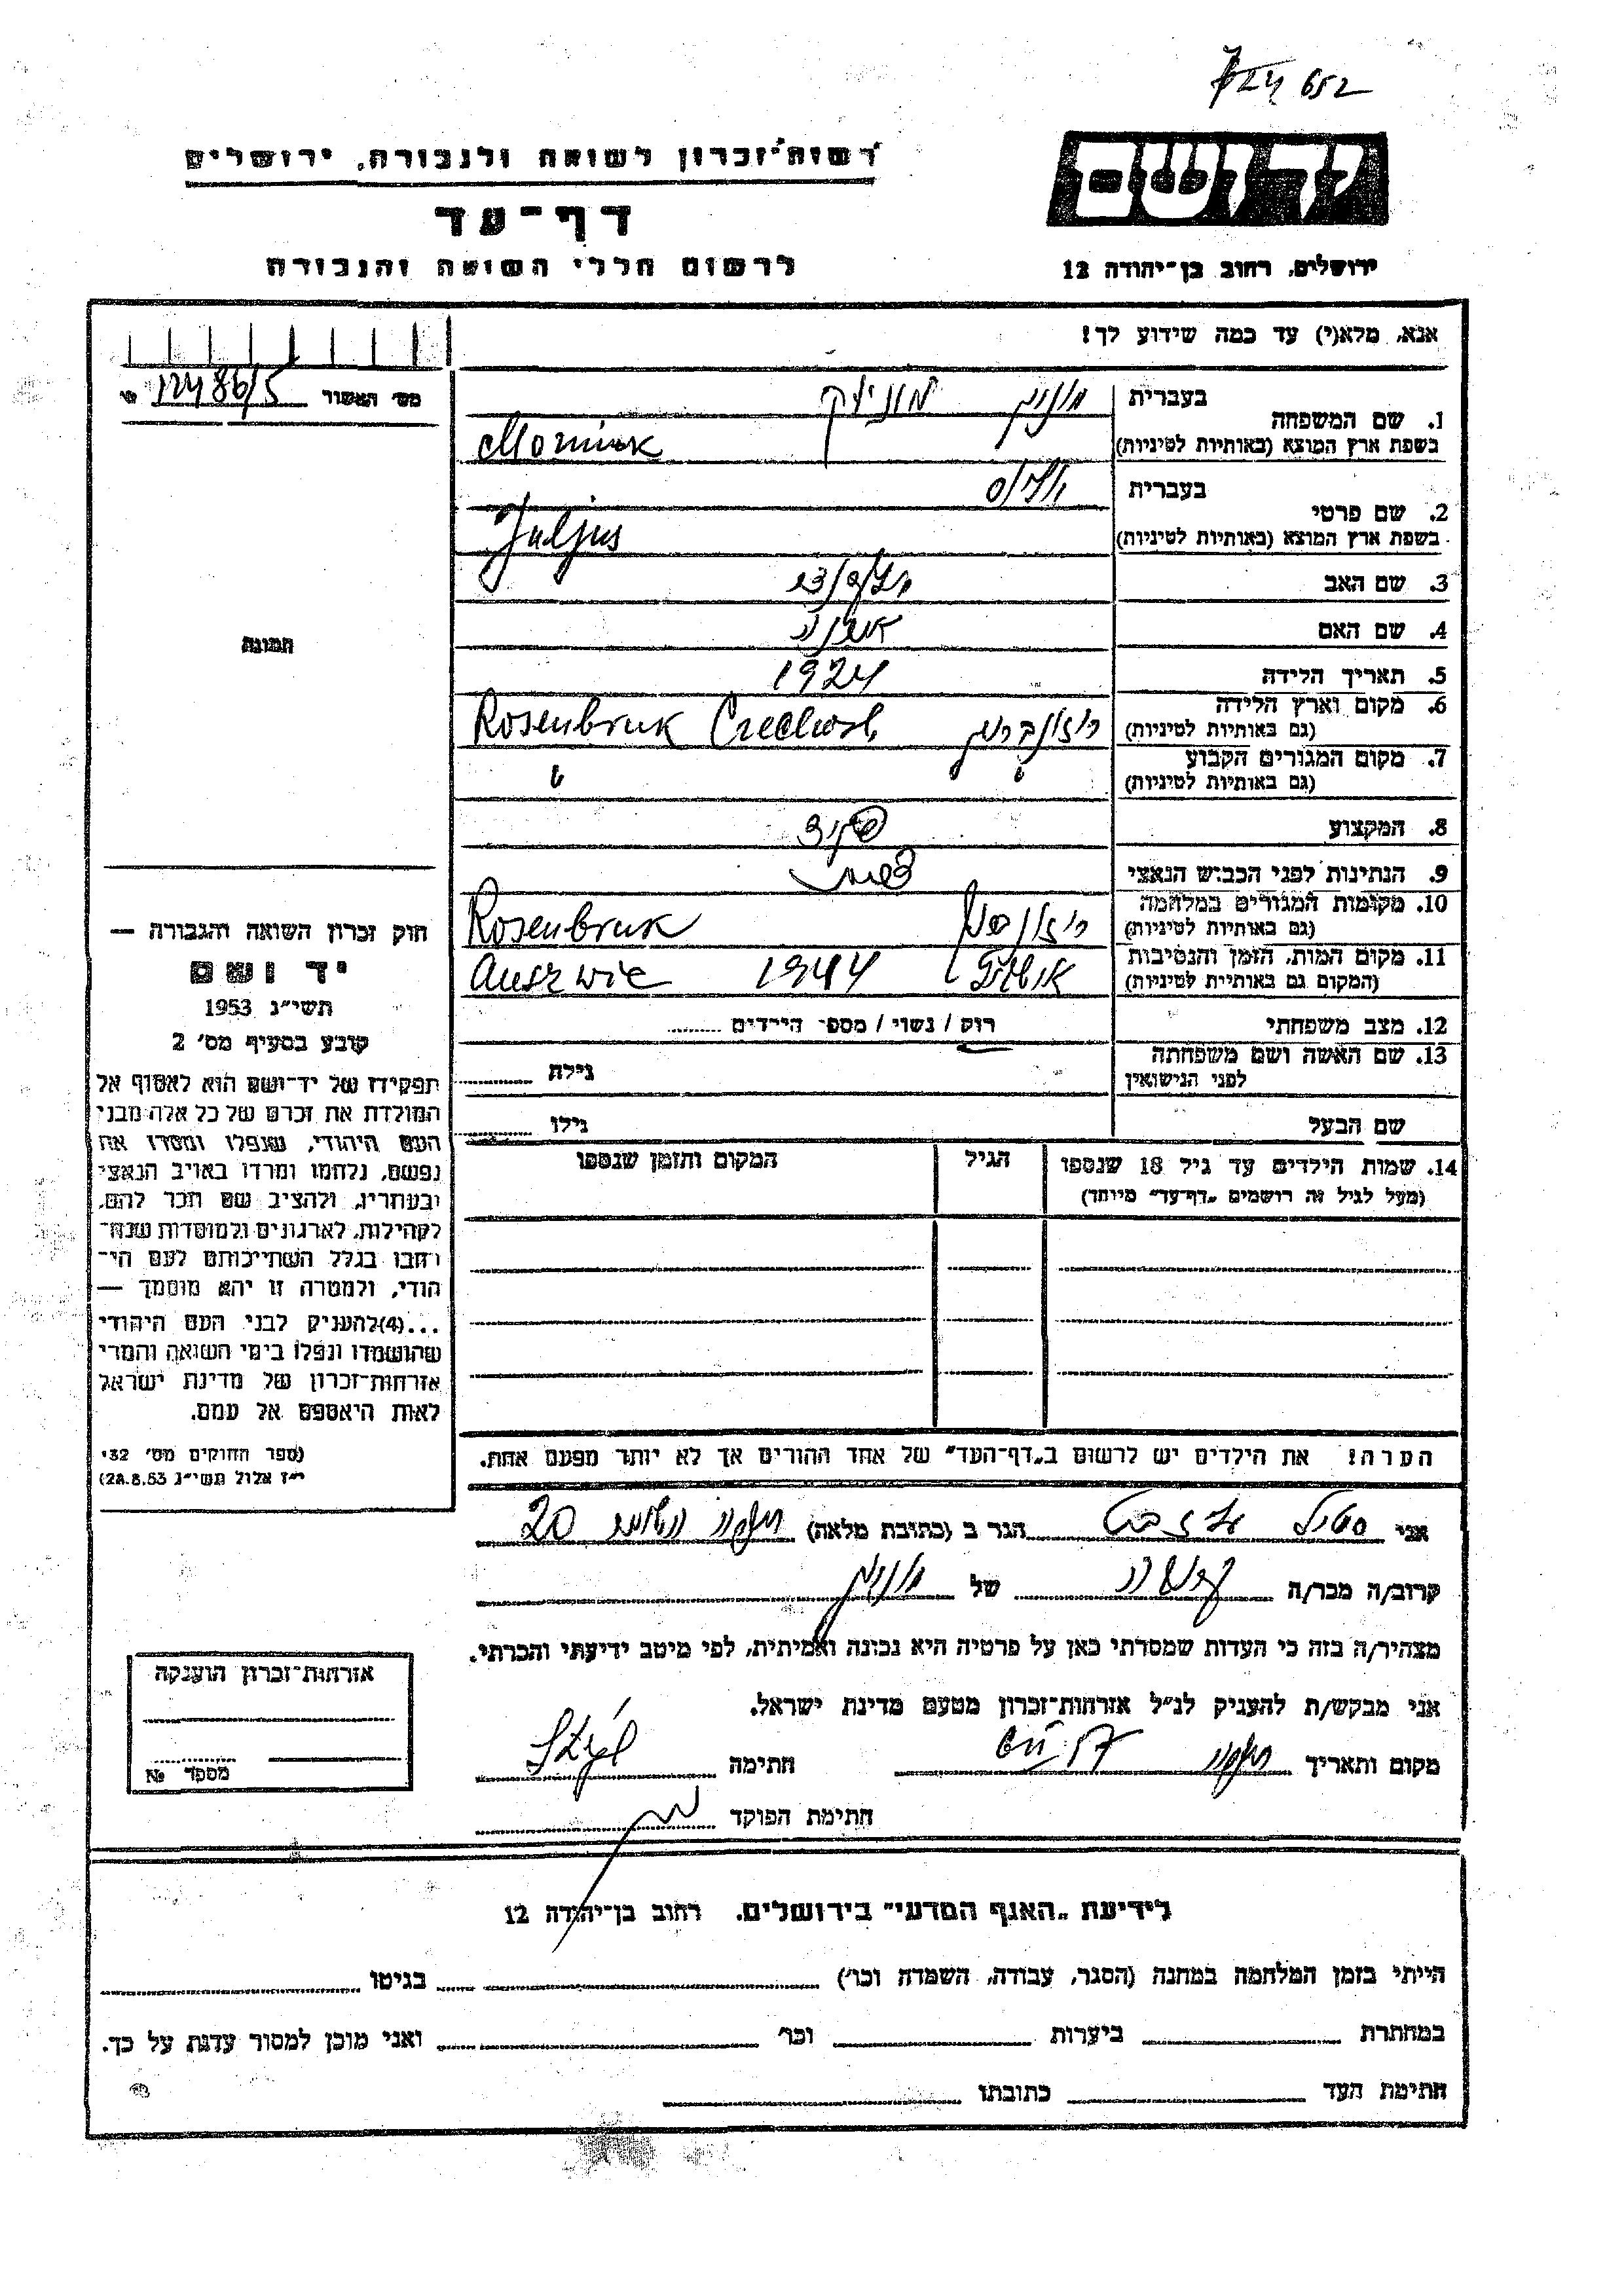 652
רשות־זכרון לשואה ולגבורה, ירושלים
דף־עד
לרשום חללי השואה והגבורה
יד ושם
ירושלים, רחוב בן־יהודה 12
אנא, מלא(י) עד כמה שידוע לך!
מס' האשור
1. שם המשפחה
בעברית מוניק מוניאק
בשפת ארץ המוצא (באותיות לטיניות) Morniak
2. שם פרטי
בעברית יוליוס
בשפת ארץ המוצא (באותיות לטיניות) Juljus
3. שם האב
4. שם האם
5. תאריך הלידה 1924
6. מקום וארץ הלידה
(גם באותיות לטיניות) רוזנברוק Rosenbruk Czechosl.
7. מקום המגורים הקבוע
(גם באותיות לטיניות) " "
8. המקצוע
9. הנתינות לפני הכבוש הנאצי
10. מקומות המגורים במלחמה
(גם באותיות לטיניות) Rosenbruk
11. מקום המות, הזמן והנסיבות
(המקום גם באותיות לטיניות) 1944 Auszwic
12. מצב משפחתי רוק / נשוי / מספר הילדים
13. שם האשה ושם משפחתה
לפני הנישואין
גילה
שם הבעל
גילו
14. שמות הילדים עד גיל 18 שנספו
(מעל לגיל זה רושמים „דף־עד” מיוחד)
הגיל
המקום והזמן שנספו
הערה! את הילדים יש לרשום ב„דף־העד” של אחד ההורים אך לא יותר מפעם אחת.
תמונה
חוק זכרון השואה והגבורה —
יד ושם
תשי״ג 1953
קובע בסעיף מס' 2
תפקידו של יד־ושם הוא לאסוף אל
המולדת את זכרם של כל אלה מבני
העם היהודי, שנפלו ומסרו את
נפשם, נלחמו ומרדו באויב הנאצי
ובעוזריו, ולהציב שם וזכר להם,
לקהילות, לארגונים ולמוסדות שנח־
רבו בגלל השתייכותם לעם הי־
הודי, ולמטרה זו יהא מוסמך —
...(4)להעניק לבני העם היהודי
שהושמדו ונפלו בימי השואה והמרי
אזרחות־זכרון של מדינת ישראל
לאות היאספם אל עמם.
(ספר החוקים מס' 132
י״ז אלול תשי״ג 28.8.53)
אני הגר ב (כתובת מלאה) 20
קרוב/ה מכר/ה של מוניק
מצהיר/ה בזה כי העדות שמסרתי כאן על פרטיה היא נכונה ואמיתית, לפי מיטב ידיעתי והכרתי.
אני מבקש/ת להעניק לנ״ל אזרחות־זכרון מטעם מדינת ישראל.
מקום ותאריך חתימה
חתימת הפוקד
אזרחות־זכרון הוענקה
מספר №
לידיעת „האגף המדעי” בירושלים, רחוב בן־יהודה 12
הייתי בזמן המלחמה במחנה (הסגר, עבודה, השמדה וכו') בגיטו
במחתרת ביערות וכו' ואני מוכן למסור עדות על כך.
חתימת העד כתובתו